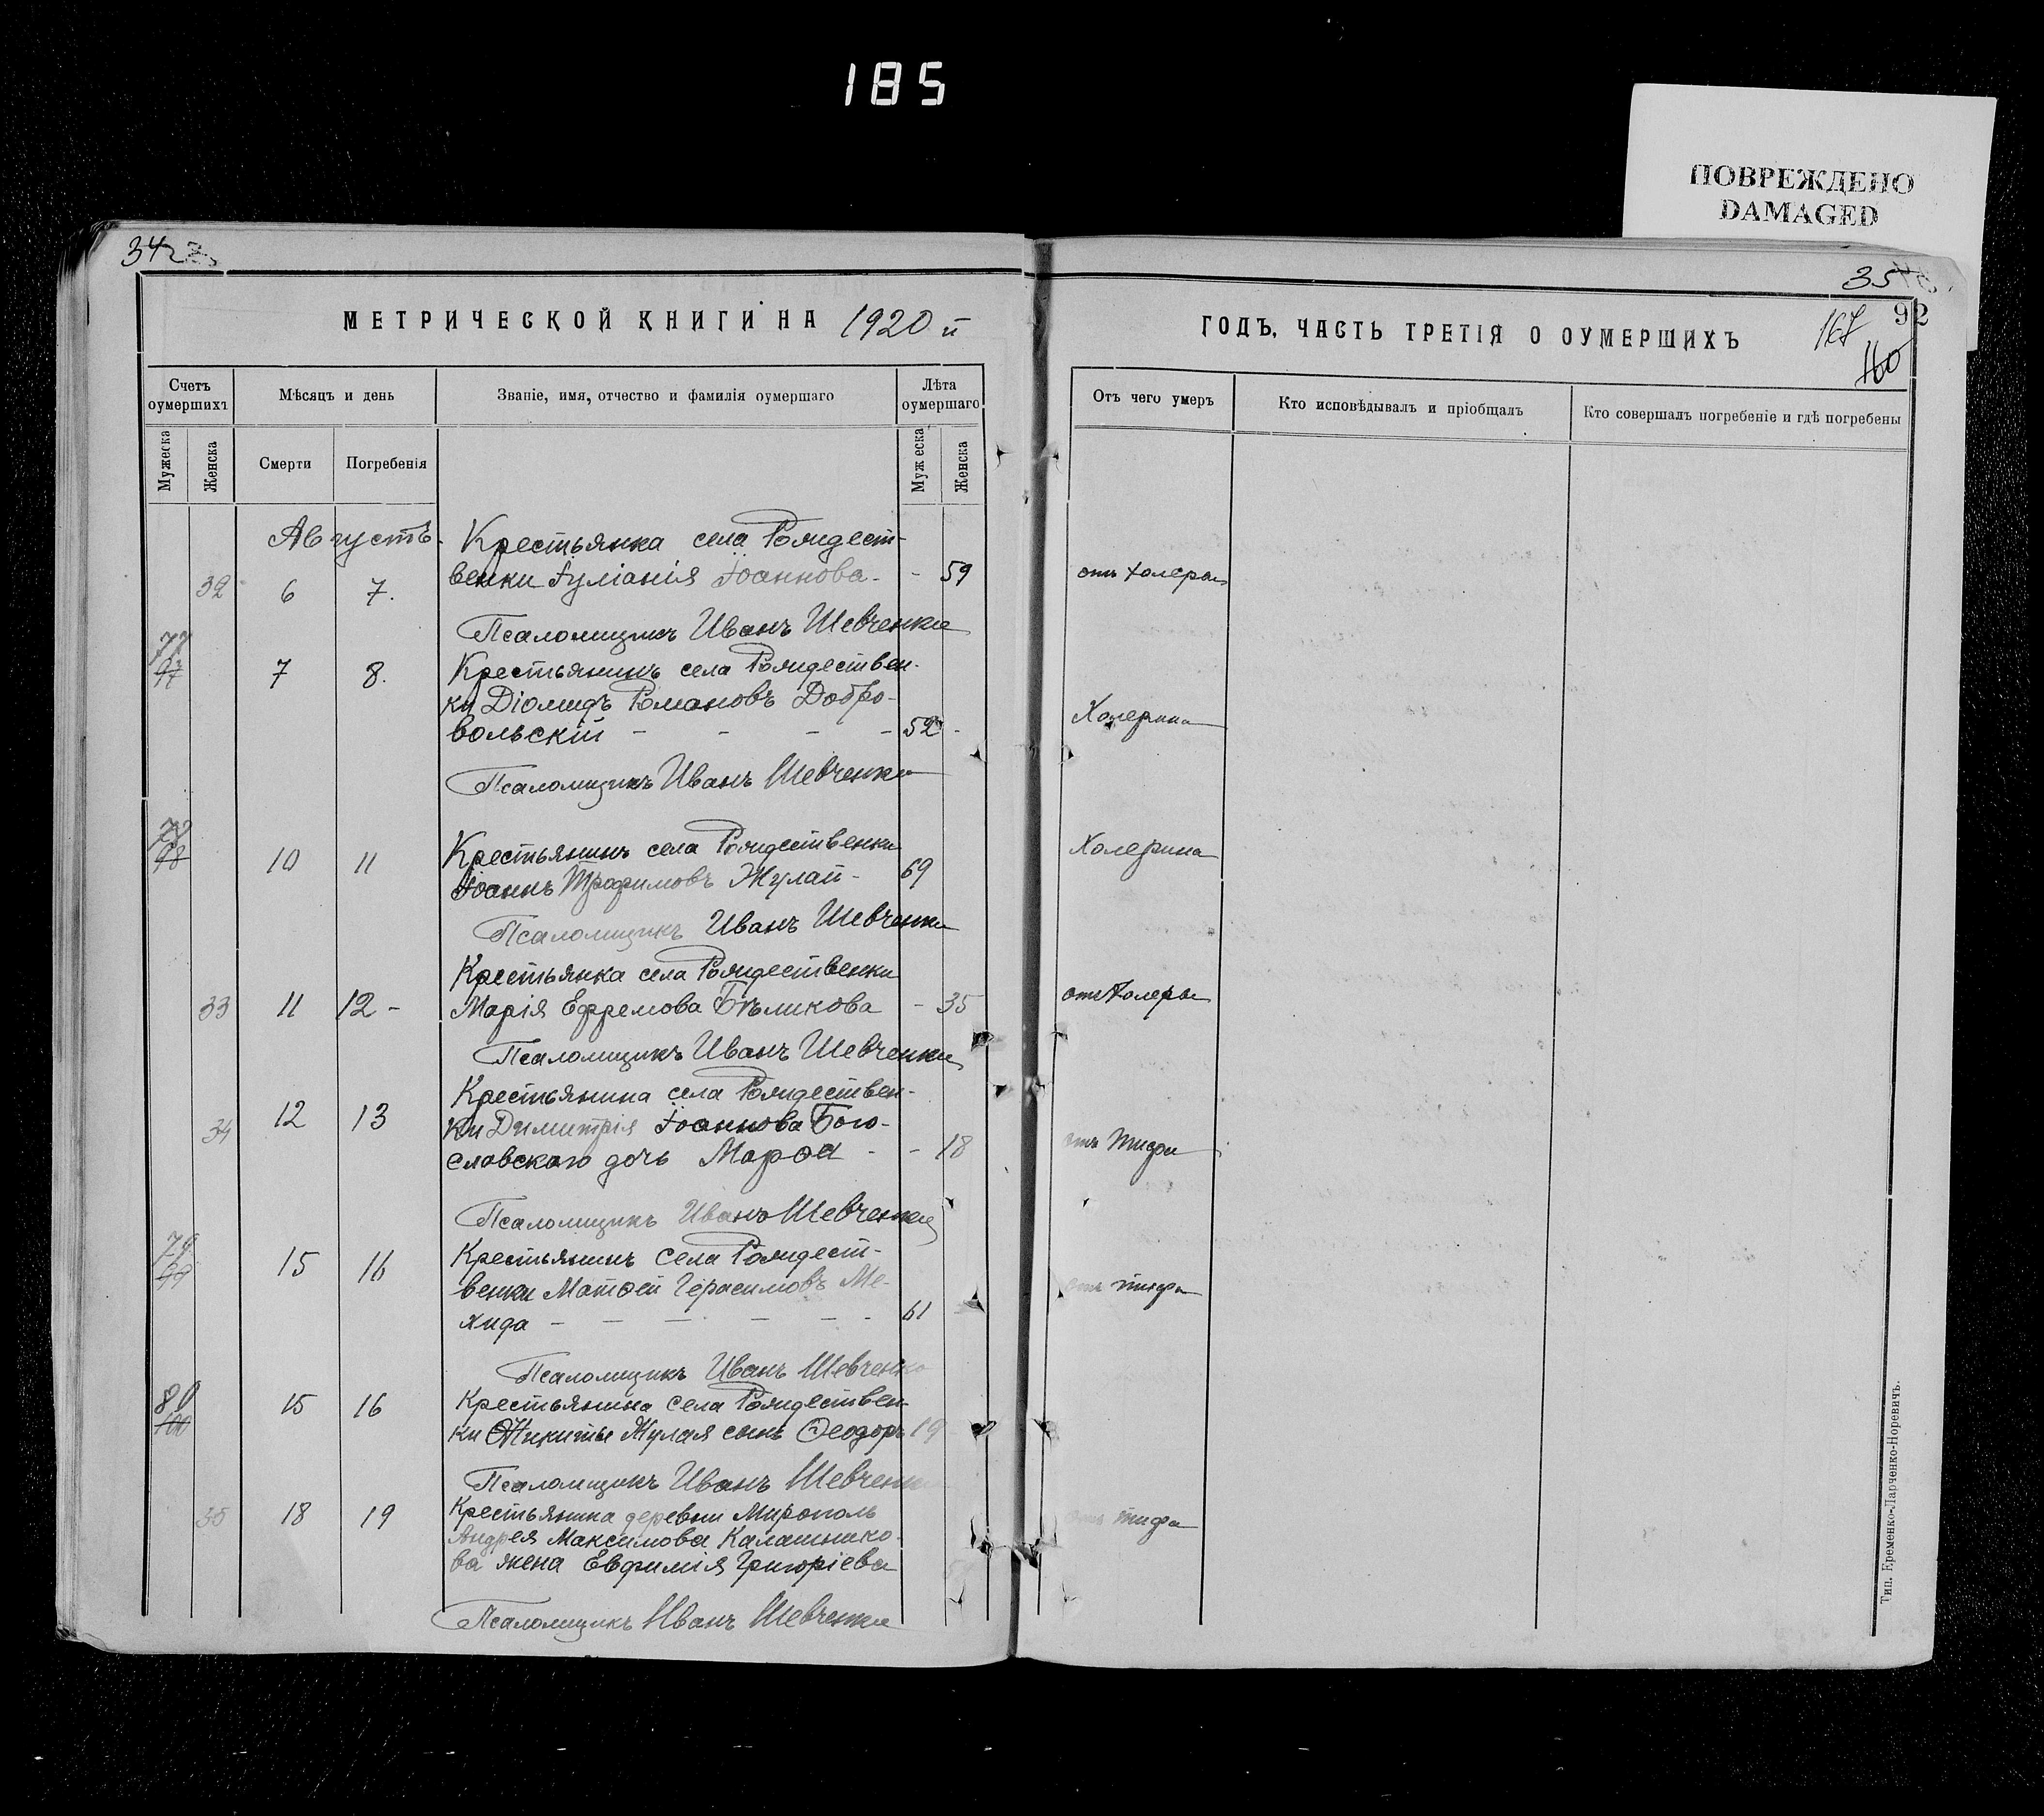 185
ПОВРЕЖДЕНО
DAMAGED
34
35
МЕТРИЧЕСКОЙ КНИГИ НА 1920 й
ГОДЪ, ЧАСТЬ ТРЕТІЯ О ОУМЕРШИХЪ
167
92
160
Счетъ оумершихъ
Мѣсяцъ и день
Званіе, имя, отчество и фамилія оумершаго
Лѣта оумершаго
Отъ чего умеръ
Кто исповѣдывалъ и пріобщалъ
Кто совершалъ погребеніе и гдѣ погребены
Мужеска
Женска
Смерти
Погребенія
Мужеска
Женска
Августъ. Крестьянка села Рождест-
32 6 7. венки Іуліанія Іоаннова - - 59 отъ холеры
Псаломщикъ Иванъ Шевченко
77
97 7 8. Крестьянинъ села Рождествен-
ки Діомидъ Романовъ Добро-
вольскій - - - - 52 - Холерина
Псаломщикъ Иванъ Шевченко
78
98 10 11 Крестьянинъ села Рождественки Холерина
Іоаннъ Трофимовъ Жулай - 69
Псаломщикъ Иванъ Шевченко
Крестьянка села Рождественки
33 11 12 - Марія Ефремова Бѣликова - 35 отъ холеры
Псаломщикъ Иванъ Шевченко
Крестьянина села Рождествен-
34 12 13 ки Димитрія Іоаннова Бого-
словскаго дочь Марѳа - - 18 отъ тифа
Псаломщикъ Иванъ Шевченко
79
99 15 16 Крестьянинъ села Рождест-
венки Матѳей Герасимовъ Ме- отъ тифа
хида - - - - - - 61
Псаломщикъ Иванъ Шевченко
80
100 15 16 Крестьянина села Рождествен-
ки Никиты Жулая сынъ Ѳеодоръ 19
Псаломщикъ Иванъ Шевченко
35 18 19 Крестьянина деревни Мирополь отъ тифа
Андрея Максимова Калашнико-
ва жена Евфимія Григоріева
Псаломщикъ Иванъ Шевченко
Тип. Еременко-Ларченко-Норевичъ.